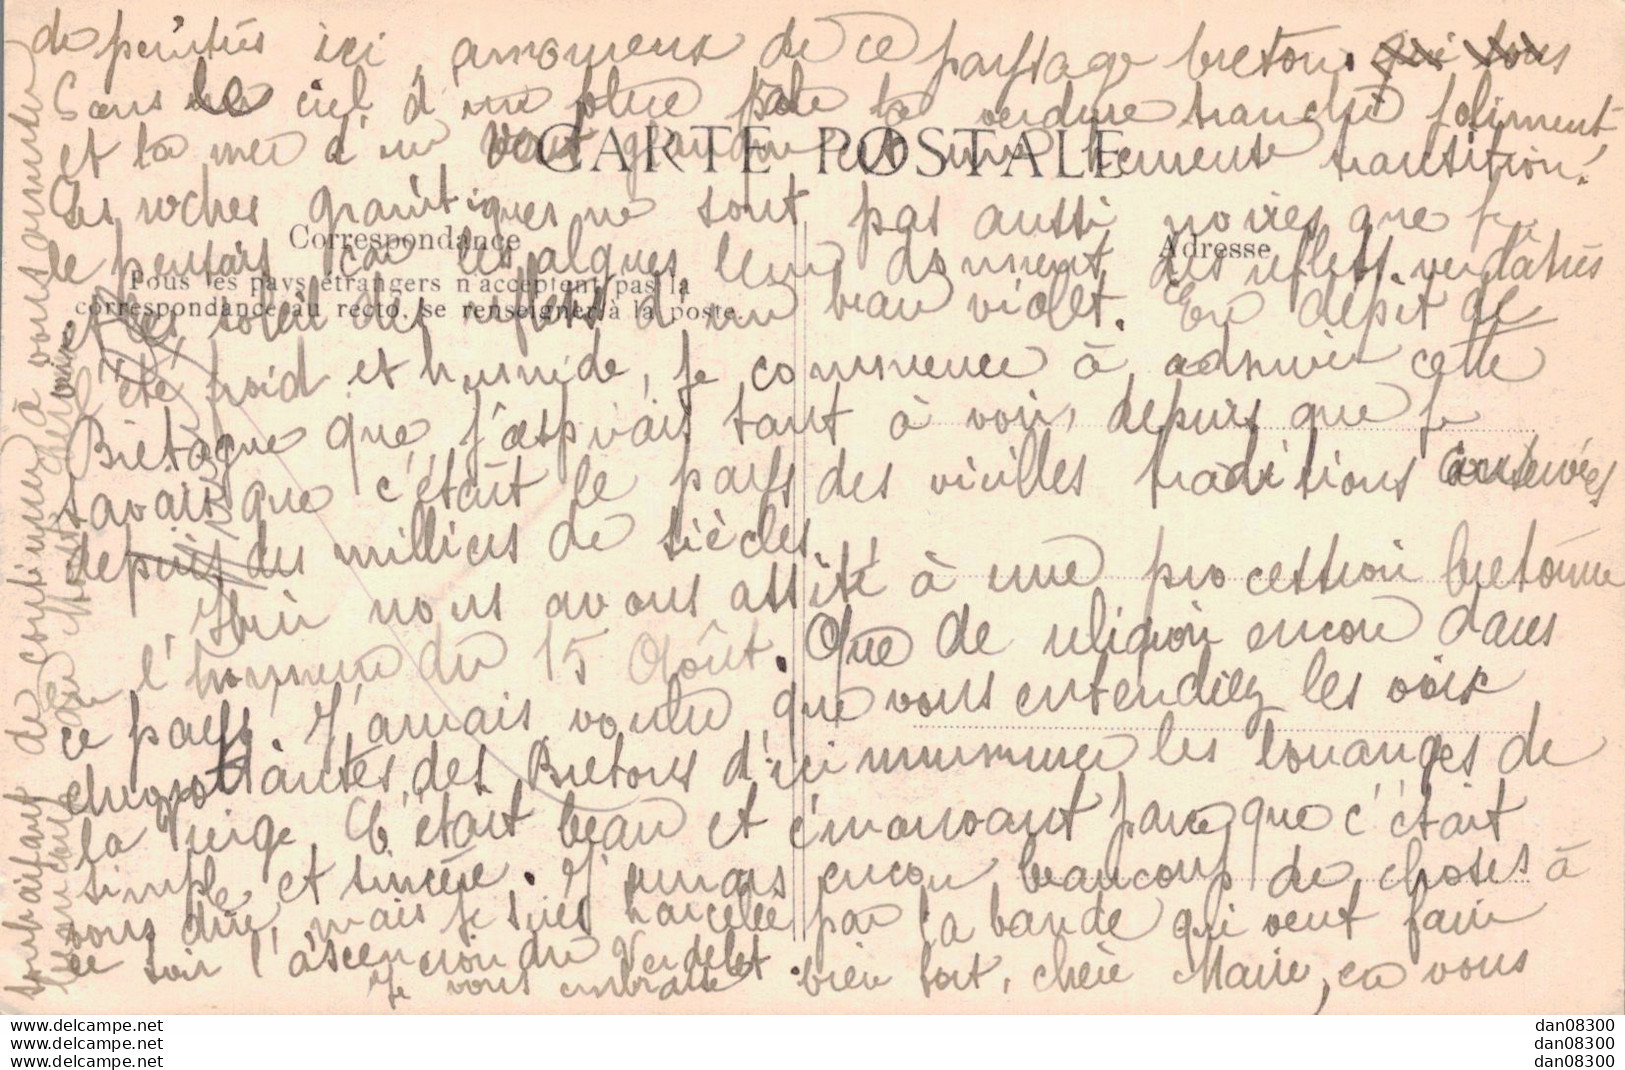 de peintres ici, amoureux de ce paysage breton. qui sous
Sous le ciel d'un bleu pâle la verdure tranche joliment
et la mer d'un vert
CARTE POSTALE
transition!
Les roches granitiques ne sont pas aussi noires que je
Correspondance
Adresse
le pensais car les algues leur donnent des reflets verdâtres
Tous les pays étrangers n'acceptent pas la
correspondance au recto, se renseigner à la poste.
et le soleil des reflets d'un beau violet. En dépit de
l'été froid et humide, je commence à admirer cette
Bretagne que j'aspirais tant à voir, depuis que je
savais que c'était le pays des vieilles traditions conservées
depuis des milliers de siècles.
Hier nous avons assisté à une procession bretonne
en l'honneur du 15 Août. Que de religion encore dans
ce pays! J'aurais voulu que vous entendiez les voix
chevrotantes des Bretons d'ici murmurer les louanges de
la Vierge. C'était beau et émouvant parce que c'était
simple et sincère. J'aurais encore beaucoup de choses à
vous dire, mais je suis harcelée par la bande qui veut faire
ce soir l'ascension du Verdelet.
Je vous embrasse bien fort, chère Marie, en vous
souhaitant de continuer à vous amuser
beaucoup
www.delcampe.net
www.delcampe.net
www.delcampe.net
dan08300
dan08300
dan08300